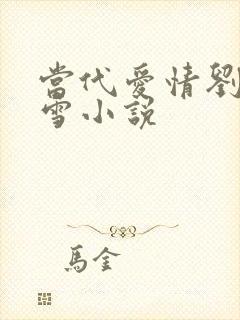 當代愛情劉
雪小說
馬金